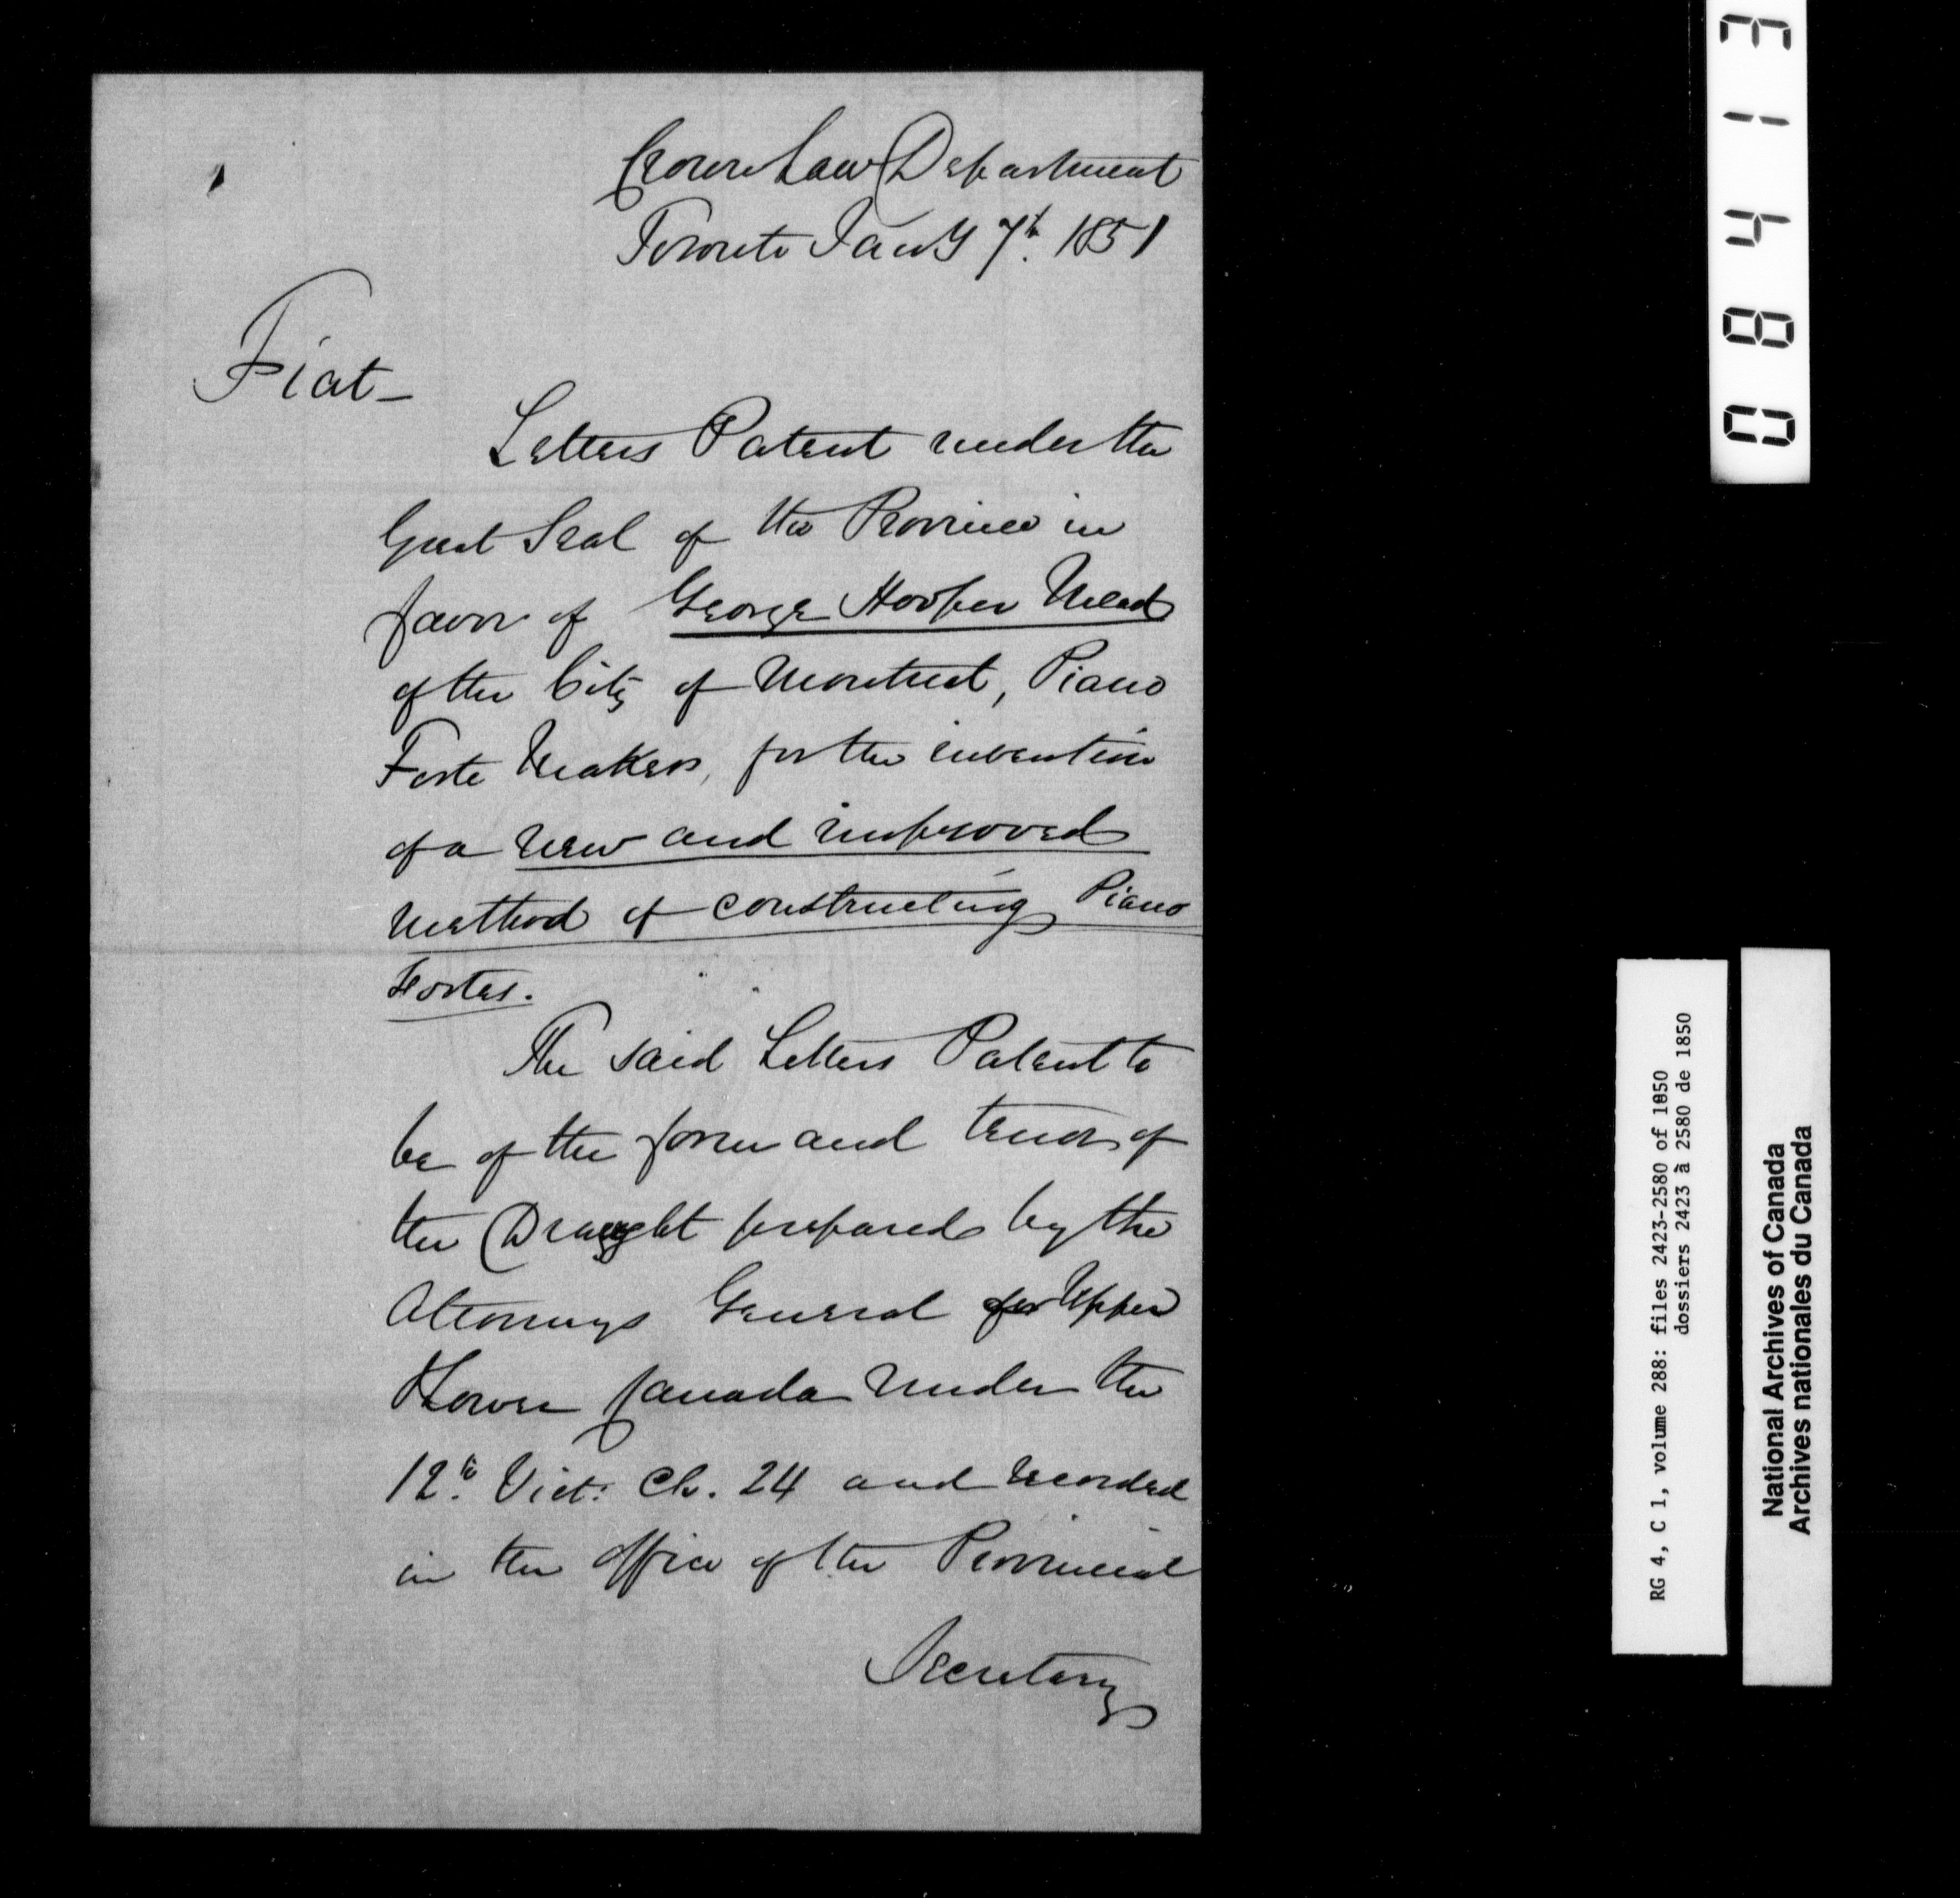 Crown Law Department
Toronto Jany 7th. 1851
Fiat_
Letters Patent under the
Great Seal of the Province in
favor of George Hooper Mead
of the City of Montreal, Piano
Forte Maker, for the invention
of a new and improved
method of constructing Piano
Fortes.
The said Letters Patent to
be of the form and tenor of
the Draught prepared by the
Attorneys General for Upper
& Lower Canada under the
12th. Vict: Ch. 24 and recorded
in the office of the Provincial
Secretary
08413
RG 4, C 1, volume 288: files 2423-2580 of 1850
dossiers 2423 à 2580 de 1850
National Archives of Canada
Archives nationales du Canada